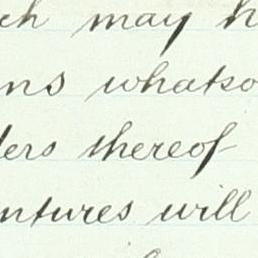 ch may h
ns whatso
ders thereof
ntures will